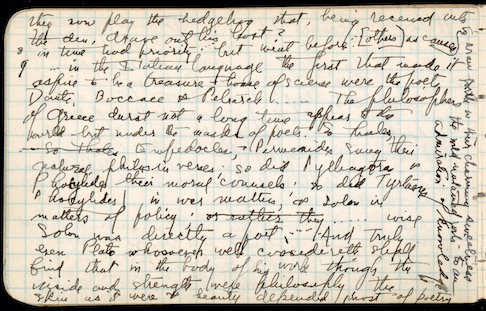 they now play the hedgehog that, being received into
the den, drave out his host?
8 in time had priority but went before [others] as causes
9 ... in the Italian language the first that made it
aspire to be a treasure-house of science were the poets
Dante, Boccace & Petrarch ...... The philosophers
of Greece durst not a long time appear to the
world but under the masks of poets. So Thales
So Thales Empedocles, & Parmenides sang their
natural philos in verses; so did Pythagoras &
Phocylides their moral counsels; so did Tyrtaeus
in war matters; & Solon in
matters of policy: or rather they ...... wise
Solon was directly a poet, ... And truly
even Plato whosoever well considereth shall
find that in the body of his work though the
inside and strength were philosophy the
skin as it were & beauty depended most of poetry
to draw with their charming sweetness
the wild untamed wits to an
admiration of knowledge